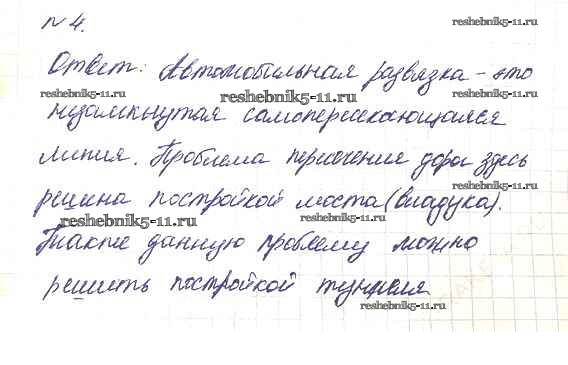 № 4.
reshebnik5-11.ru
Ответ: Автомобильная развязка - это
reshebnik5-11.ru
reshebnik5-11.ru
reshebnik5-11.ru
незамкнутая самопересекающаяся
линия. Проблема пересечения дорог здесь
reshebnik5-11.ru
решена постройкой моста (виадука).
reshebnik5-11.ru
reshebnik5-11.ru
Также данную проблему можно
решить постройкой туннеля
reshebnik5-11.ru